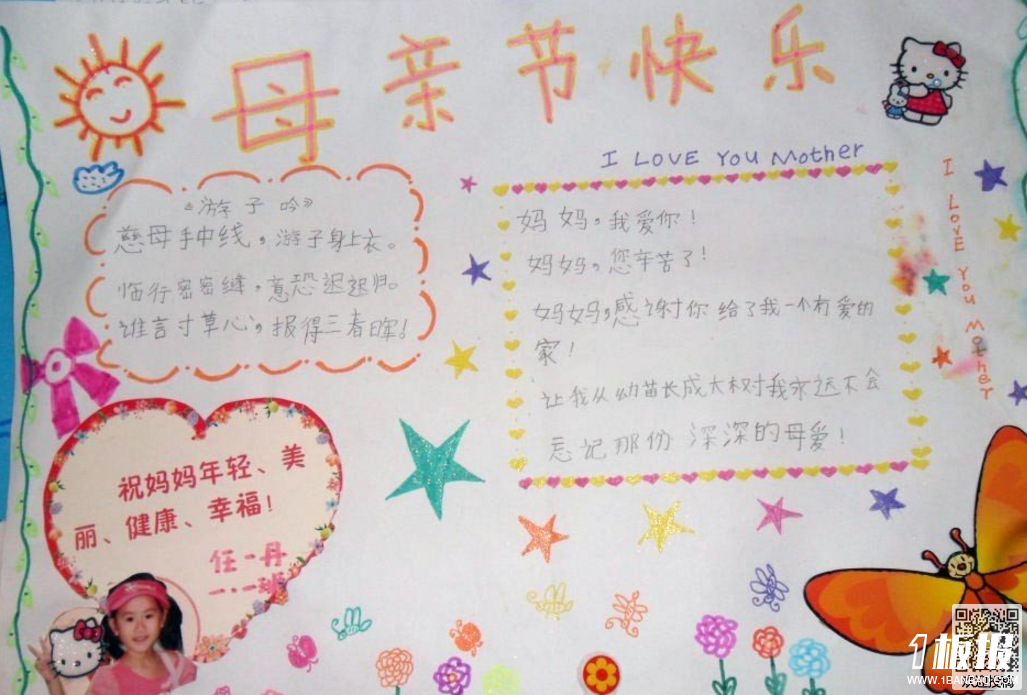 母亲节快乐
I LOVE YOU Mother
《游子吟》
慈母手中线，游子身上衣。
临行密密缝，意恐迟迟归。
谁言寸草心，报得三春晖！
妈妈，我爱你！
妈妈，您辛苦了！
妈妈，感谢你给了我一个有爱的
家！
让我从幼苗长成大树对我永远不会
忘记那份深深的母爱！
I LOVE YOU Mother
祝妈妈年轻、美
丽、健康、幸福！
任一丹
一.一班
1板报
WWW.1BANBAO.COM